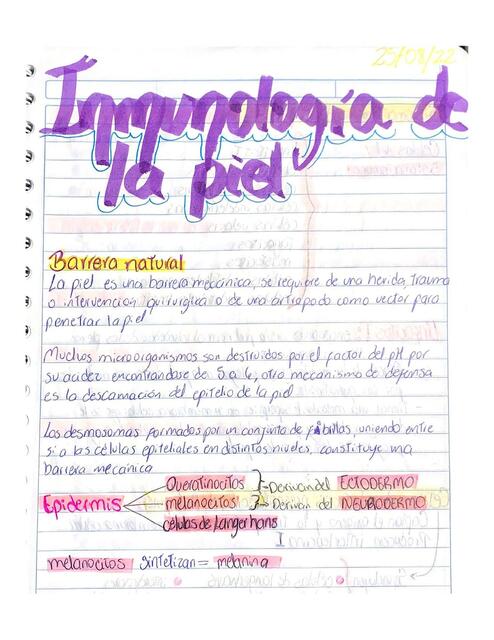 25/08/22
Inmunología de
la piel
Barrera natural
La piel es una barrera mecánica, se requiere de una herida, trauma
o intervencion quirurgica o de un artropodo como vector para
penetrar la piel
Muchos microorganismos son destruidos por el factor del pH por
su acidez encontrandose de 5 a 6, otro mecanismo de defensa
es la descamación del epitelio de la piel
Los desmosomas formados por un conjunto de fibrillas, uniendo entre
si a las células epiteliales en distintos niveles, constituye una
barrera mecánica
Queratinocitos } Derivan del ECTODERMO
Epidermis melanocitos } → Derivan del NEURODERMO
células de langerhans
melanocitos sintetizan = melanina